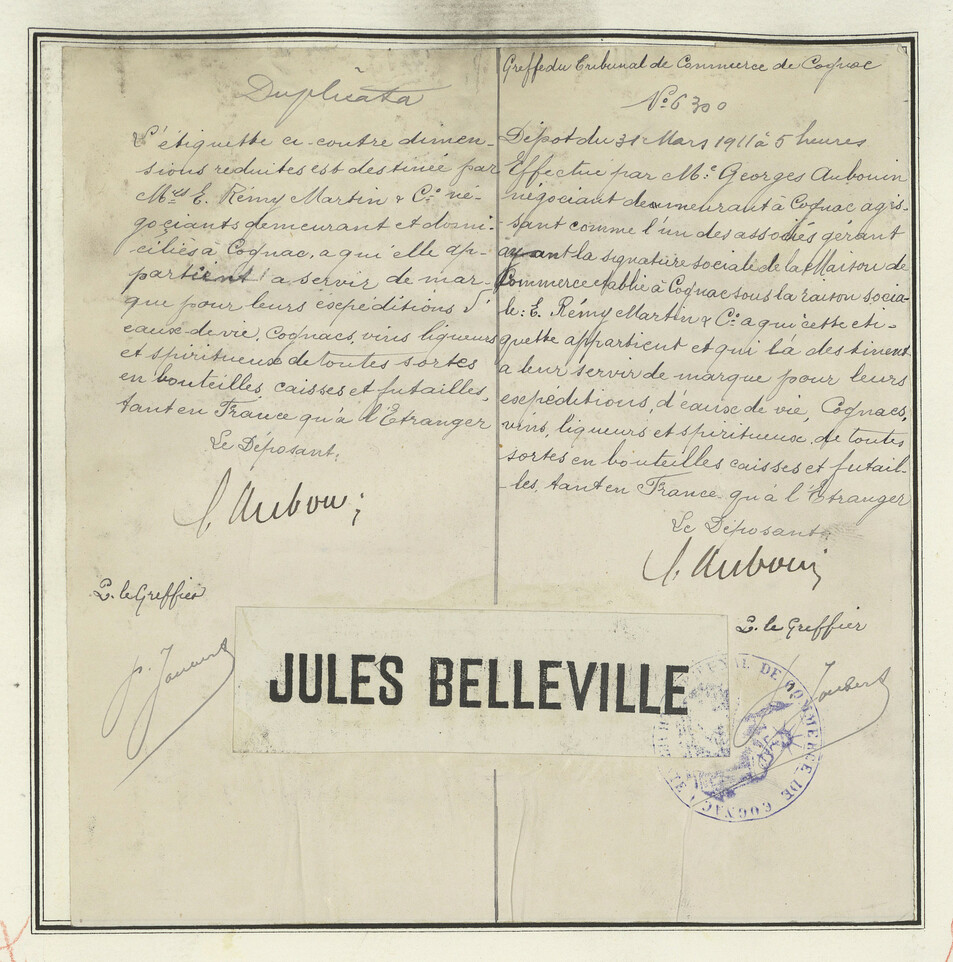 Duplicata
L'étiquette ci-contre dimen-
sions reduites est destinée par
M.rs E. Rémy Martin & C.º né-
gociants demeurant et domi-
ciliés à Cognac, a qui elle ap-
partient a servir de mar-
que pour leurs expéditions d'
eaux de vie, cognacs, vins liqueurs
et spiritueux de toutes sortes
en bouteilles, caisses et futailles,
tant en France qu'à l'Etranger
Le Déposant:
G. Aubouin
P. le Greffier
J. Joubert
Greffe du Tribunal de Commerce de Cognac
Nº 6300
Dépot du 31 Mars 1911 à 5 heures
Effectué par M.e Georges Aubouin
négociant demeurant à Cognac agis-
-sant comme l'un des associés gerant
ayant la signature sociale de la Maison de
Commerce établie à Cognac sous la raison socia-
le: E. Rémy Martin & C.º a qui cette éti-
quette appartient et qui la destinent
a leur servir de marque pour leurs
expéditions, d'eaux de vie, Cognacs,
vins, liqueurs et spiritueux, de toutes
sortes en bouteilles caisses et futail-
-les, tant en France qu'à l'Etranger
Le Déposant:
G. Aubouin
P. le Greffier
J. Joubert
JULES BELLEVILLE
TRIBUNAL DE COMMERCE DE COGNAC